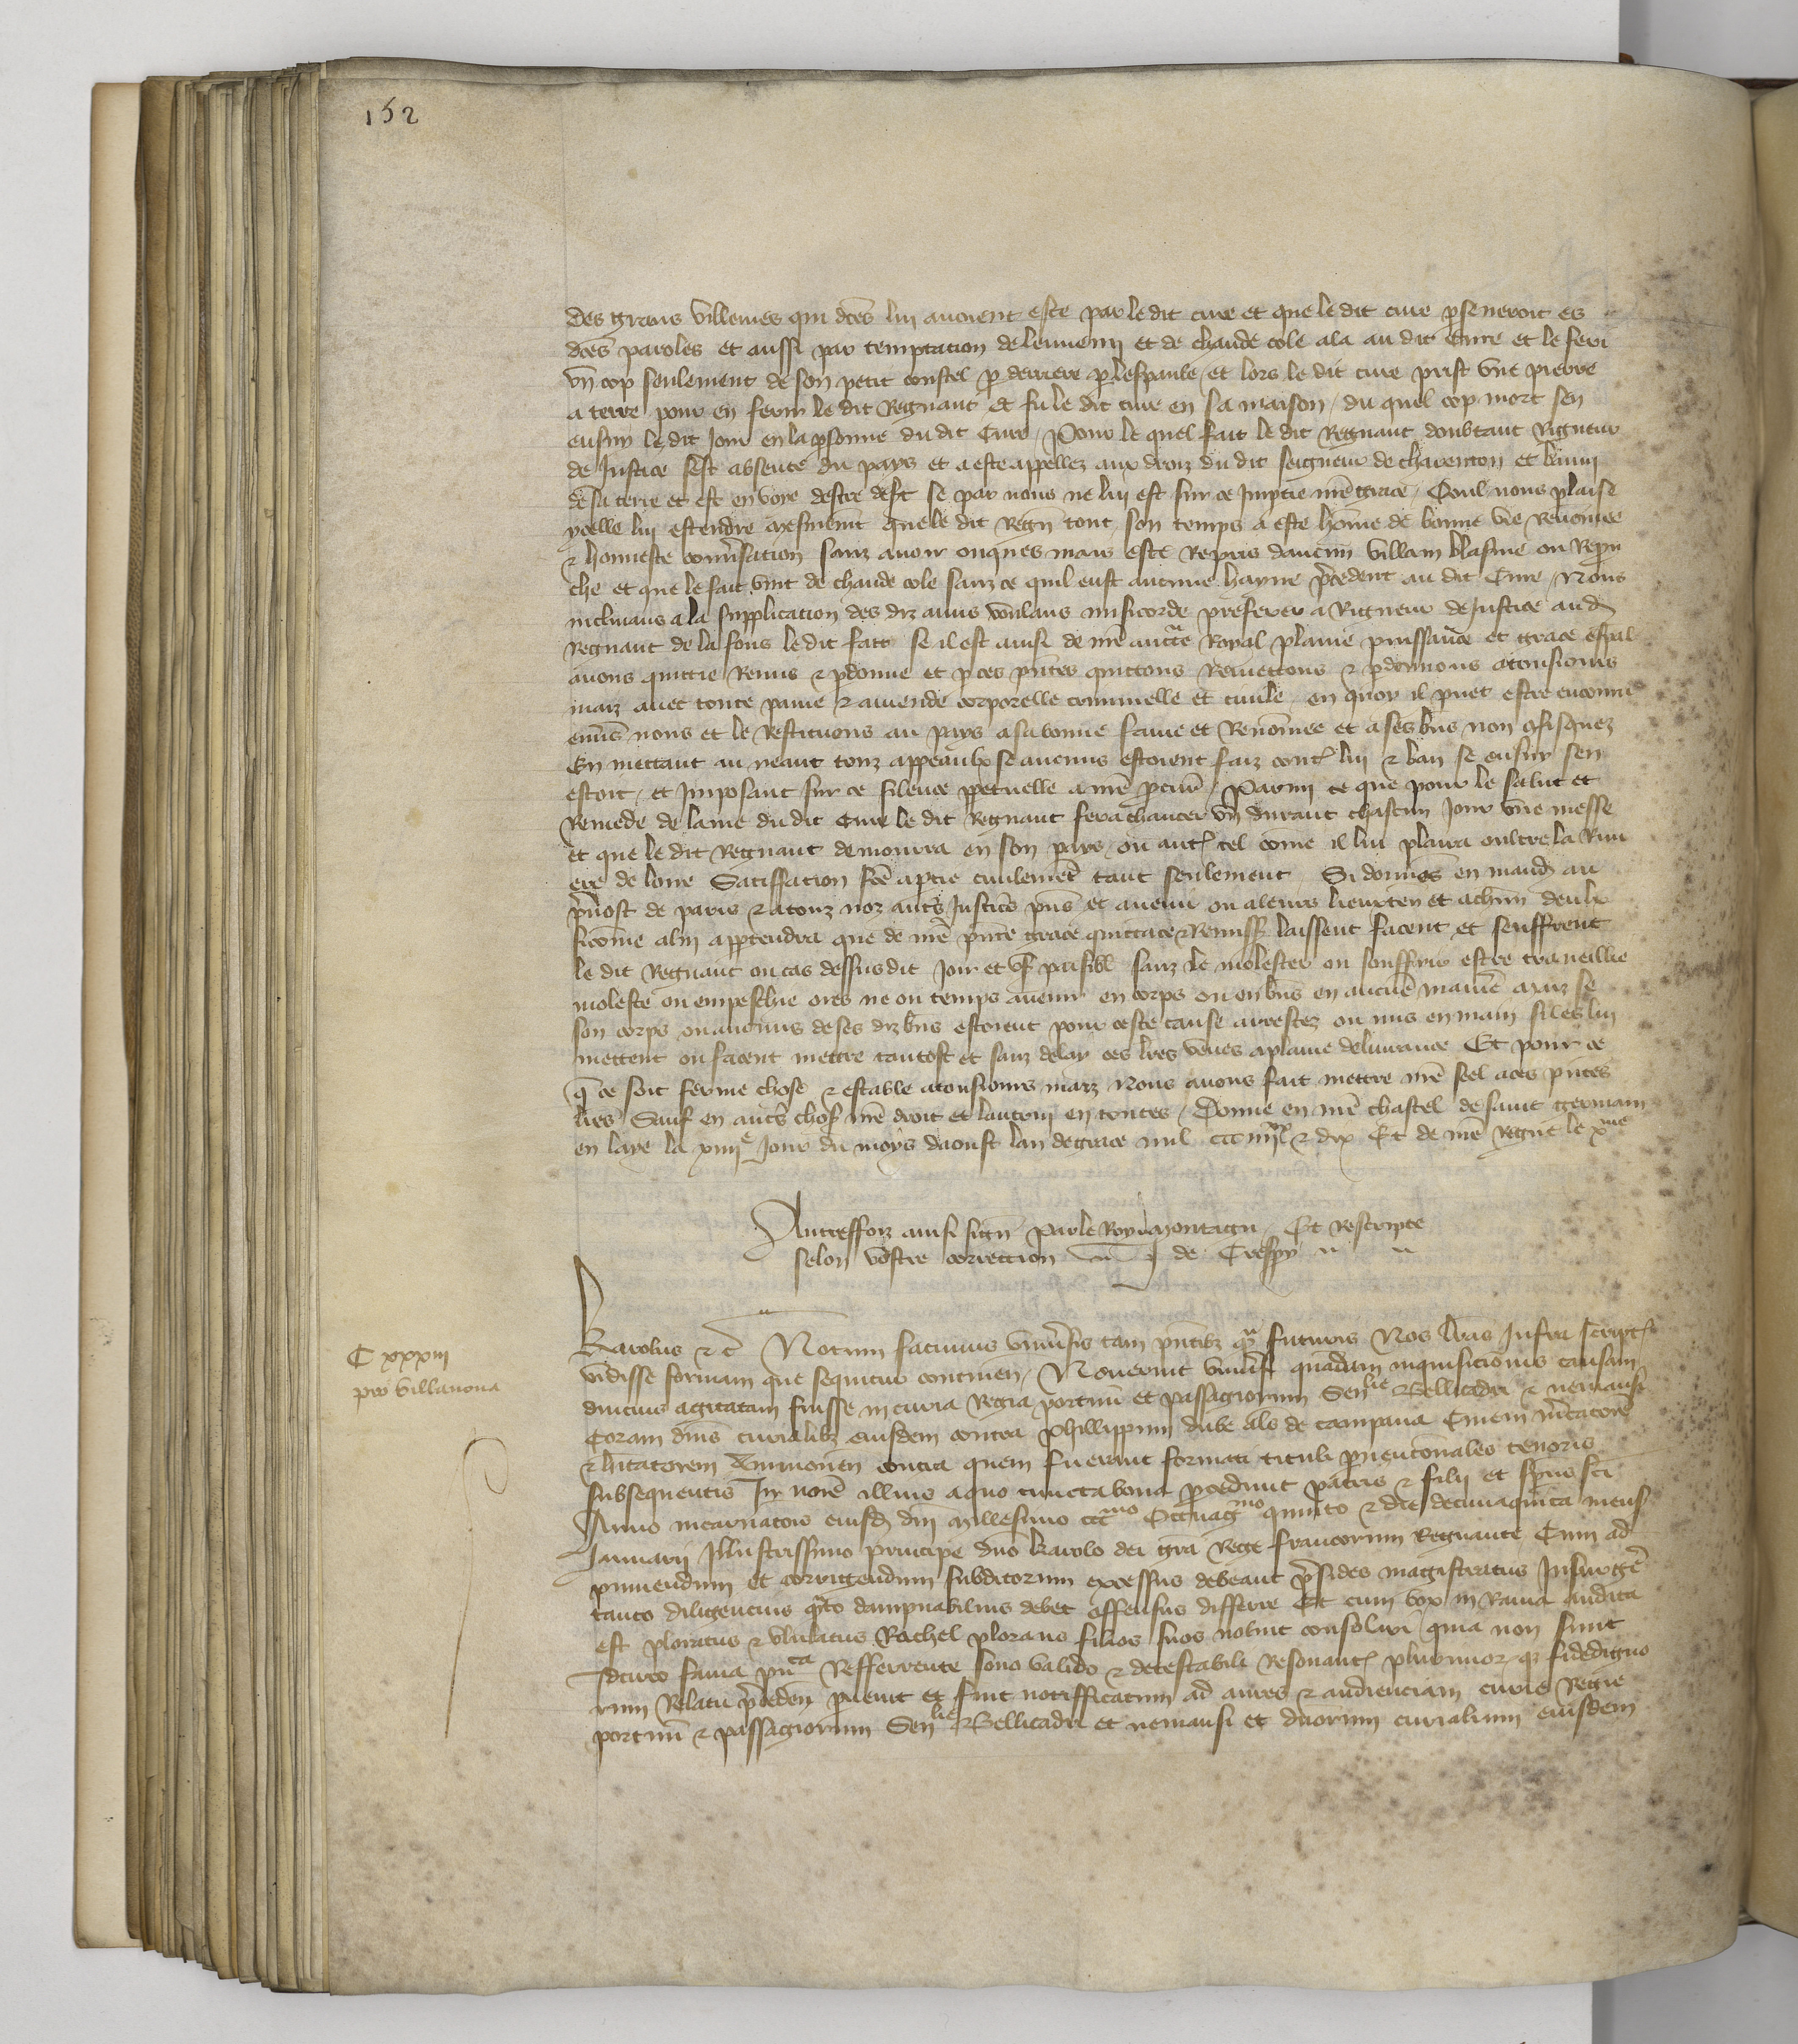 152
des grans villenies qui dces lui avoient este par le dit cure et que le dit cure pseveroit es
dces paroles et aussi par temptation de lennemi et de chaude cole ala au dit Cure et le feri
un cop seulement de son petit coustel p derriere p lespaule et lors le dit cure prist une pierre
a terre pour en ferir le dit Regnaut et fu le dit cure en sa maison du quel cop mort sen
ensuy le dit jour en la psonne du dit Cure Pour le quel fait le dit Regnaut doubtant Rigueur
de Justice sest absente du pays et a este appellez aux droiz du dit seigneur de charenton et banni
de sa terre et est en voye destre desert se par nous ne lui est sur ce Impartie nre grace Quil nous plaise
ycelle lui estendre mesmemt que le dit Regn tout son temps a este homme de bonne vie Renomee
& honneste conversation sanz avoir onques mais este Repris daucun villain blasme ou Repru
che et que le fait vint de chaude cole sanz ce quil eust aucune hayne precedent au dit Cure Nous
inclinans a la supplication des diz amis voulans misicorde preferer a Rigueur de Justice aud
Regnaut de la fons le dit fait se il est ainsi de nre auctte Royal plaine puissance et grace espal
avons quittie Remis & pdonne et p ces pntes quittons Remettons & pdonnons a tousjours
maiz avec toute paine & amende corporelle criminelle et civile en quoy il puet estre encouru
envers nous et le Restituons au pays a sa bonne fame et Renommee et a ses bns non confisquez
En mettant au neant touz appeaulx se aucuns estoient faiz cont lui & ban se ensuy sen
estoit et Imposant sur ce silence ppetuelle a nre pcur Parmi ce que pour le salut et
Remede de lame du dit Cure le dit Regnaut fera chanter un durant chascun jour une messe
et que le dit Regnaut demourra en son pays ou aut tel come il lui plaira oultre la Rivi
ere de loire Satiffacion fce a ptie civilement tant seulement Si donnos en mand au
prevost de paris & a touz noz autrs Justicrs pns et avenir ou a leurs lieuxten et a chun deulx
sicome a lui apptendra que de nre pnte grace quittace & Remiss laissent facent et seuffrent
le dit Regnaut ou cas dessusdit joir et user paisibl sanz le molester ou souffrir estre travaillie
moleste ou empeschie ores ne ou temps avenir en corps ou en bns en aucune maniere maiz se
son corps ou aucuns de ses diz bns estoient pour ceste cause arrestez ou mis en main si les lui
mettent ou facent mettre tantost et sanz delay ces lres veues a plaine delivrance Et pour ce
q ce soit ferme chose & estable a tousjours maiz Nous avons fait mettre nre seel a ces pntes
lres Sauf en autrs chos nre droit et lautrui en toutes Donne en nre chastel de saint germain
en laye le xiiiie jour du moys daoust lan de grace mil ccc iiiixx & dix Et de nre Regne le xme
Autreffoiz ainsi sign Par le Roy Montagu Et Rescripte
selon vostre correction J de Crespy
C xxxiii
pro villanova
Karolus &c Notum facimus universis tam pntibz q futuris Nos lras Infra script
vidisse formam que sequitur continen Noverint universi quadam inquisicionis causam
diucius agitatam fuisse in curia Regia portuum et passagiorum Senlie Bellicadri & nemausi
Coram dnis curialibz eiusdem contra Phillippum dube als de campana Civem mcatore
& hitatorem Avinionen contra quem fuerunt formati tituli pvencionales tenoris
subsequentis In noie illius a quo cuncta bona pcedunt patris & filii et spus sci
Anno incarnatois eiusd dni Millesimo cccmo Octuagmo quinto & die decimaquinta mens
Januarii Illustrissimo principe dno Karolo dei gra Rege francorum Regnante Cum ad
puniendum et corrigendum subditorum excessus debeant presides magistratus Insurge
tanto diligencius quto dampnabilius debet offensus differre Et cum vox in Rama audita
est ploratus & ululatus Rachel plorans filios suos noluit consolari quia non sunt
Idcirco fama puca Refferrente sono valido & detestabili Resonant plurimor q fidedigno
rum Relatu preceden pvenit et fuit notifficatum ad aures & audienciam curie Regie
portuum & passagiorum Senlie Bellicadri et nemausi et dnorum curialium eiusdem